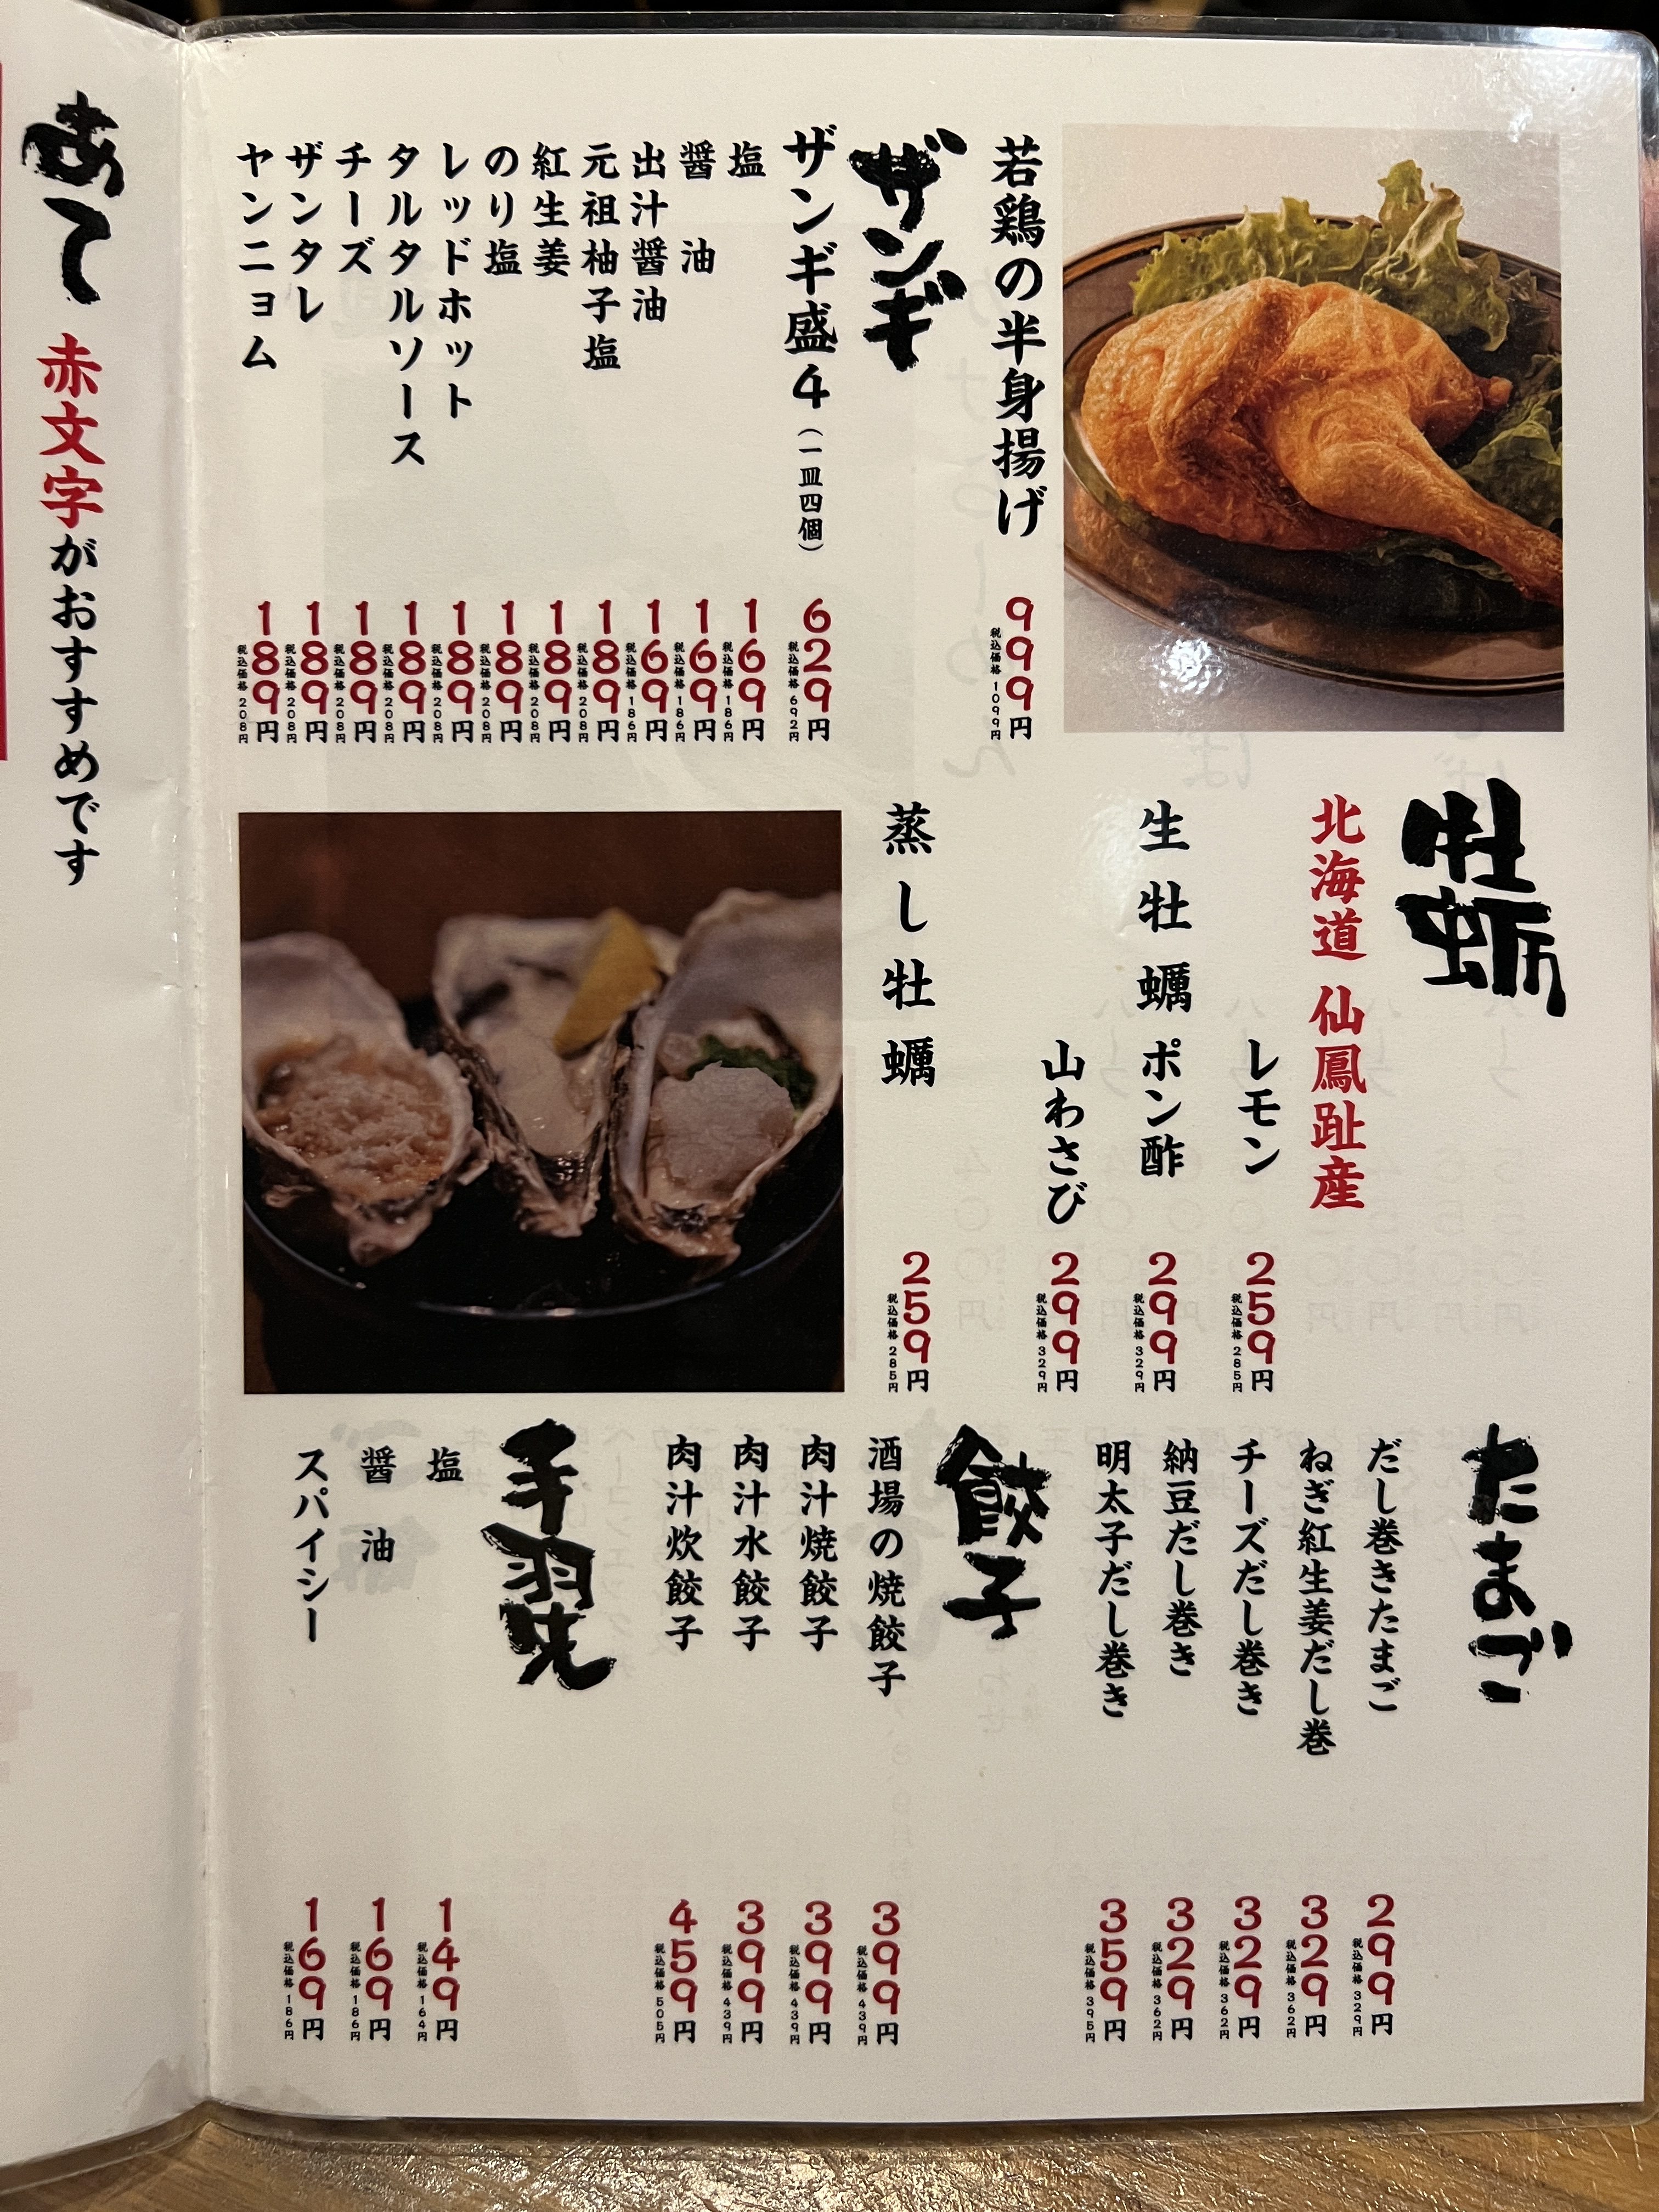 若鶏の半身揚げ 999円 税込価格 1099円
ザンギ
ザンギ盛4(一皿四個) 629円 税込価格 692円
塩 169円 税込価格 186円
醤油 169円 税込価格 186円
出汁醤油 169円 税込価格 186円
元祖柚子塩 189円 税込価格 208円
紅生姜 189円 税込価格 208円
のり塩 189円 税込価格 208円
レッドホット 189円 税込価格 208円
タルタルソース 189円 税込価格 208円
チーズ 189円 税込価格 208円
ザンタレ 189円 税込価格 208円
ヤンニョム 189円 税込価格 208円
牡蛎
北海道 仙鳳趾産
レモン 259円 税込価格 285円
生牡蠣 ポン酢 299円 税込価格 329円
山わさび 299円 税込価格 329円
蒸し牡蠣 259円 税込価格 285円
たまご
だし巻きたまご 299円 税込価格 329円
ねぎ紅生姜だし巻 329円 税込価格 362円
チーズだし巻き 329円 税込価格 362円
納豆だし巻き 329円 税込価格 362円
明太子だし巻き 359円 税込価格 395円
餃子
酒場の焼餃子 399円 税込価格 439円
肉汁焼餃子 399円 税込価格 439円
肉汁水餃子 399円 税込価格 439円
肉汁炊餃子 459円 税込価格 505円
手羽先
塩 149円 税込価格 164円
醤油 169円 税込価格 186円
スパイシー 169円 税込価格 186円
あて 赤文字がおすすめです